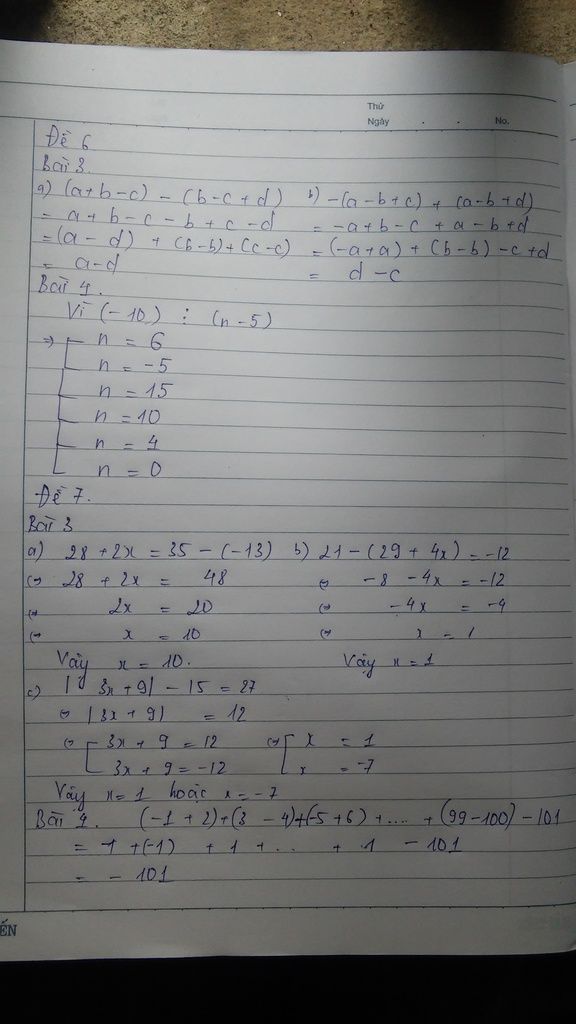 Thứ
Ngày . . No.
Đề 6
Bài 3.
a) (a+b-c) - (b-c+d) b) -(a-b+c) + (a-b+d)
= a+b-c-b+c-d = -a+b-c+a-b+d
= (a-d) + (b-b)+(c-c) = (-a+a) + (b-b) -c+d
= a-d = d-c
Bài 4.
Vì (-10) ⋮ (n-5)
=> n = 6
n = -5
n = 15
n = 10
n = 4
n = 0
Đề 7.
Bài 3
a) 28 + 2x = 35 - (-13) b) 21 - (29 + 4x) = -12
<=> 28 + 2x = 48 <=> -8 - 4x = -12
<=> 2x = 20 <=> -4x = -4
<=> x = 10 <=> x = 1
Vậy x = 10. Vậy x = 1
c) |3x+9| - 15 = 27
<=> |3x+9| = 12
<=> 3x + 9 = 12 <=> x = 1
3x + 9 = -12 x = -7
Vậy x = 1 hoặc x = -7
Bài 4. (-1 + 2)+(3 - 4)+(-5+6) + .... + (99-100) - 101
= 1 + (-1) + 1 + ... + 1 - 101
= - 101
ẾN